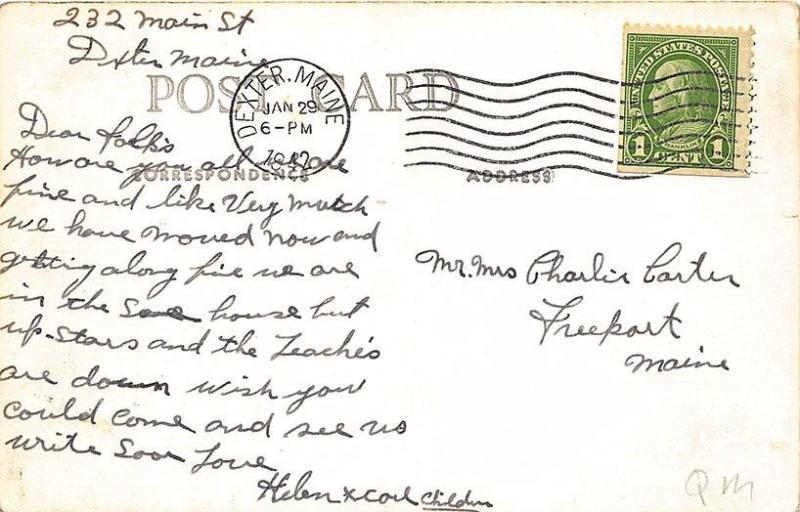 232 Main St
Dxter Maine
POST CARD
DEXTER. MAINE
JAN 29
6-PM
UNITED STATES POSTAGE
FRANKLIN
1 CENT 1
CORRESPONDENCE
ADDRESS
Dear folks
How are you all we are
fine and like Very much
we have moved now and
getting along fine we are
in the Same house but
up-stars and the Teache's
are down wish you
could come and see us
write Soon Love
Helen & Carl Children
Mr. Mrs Charlie Carter
Freeport
Maine
Q M